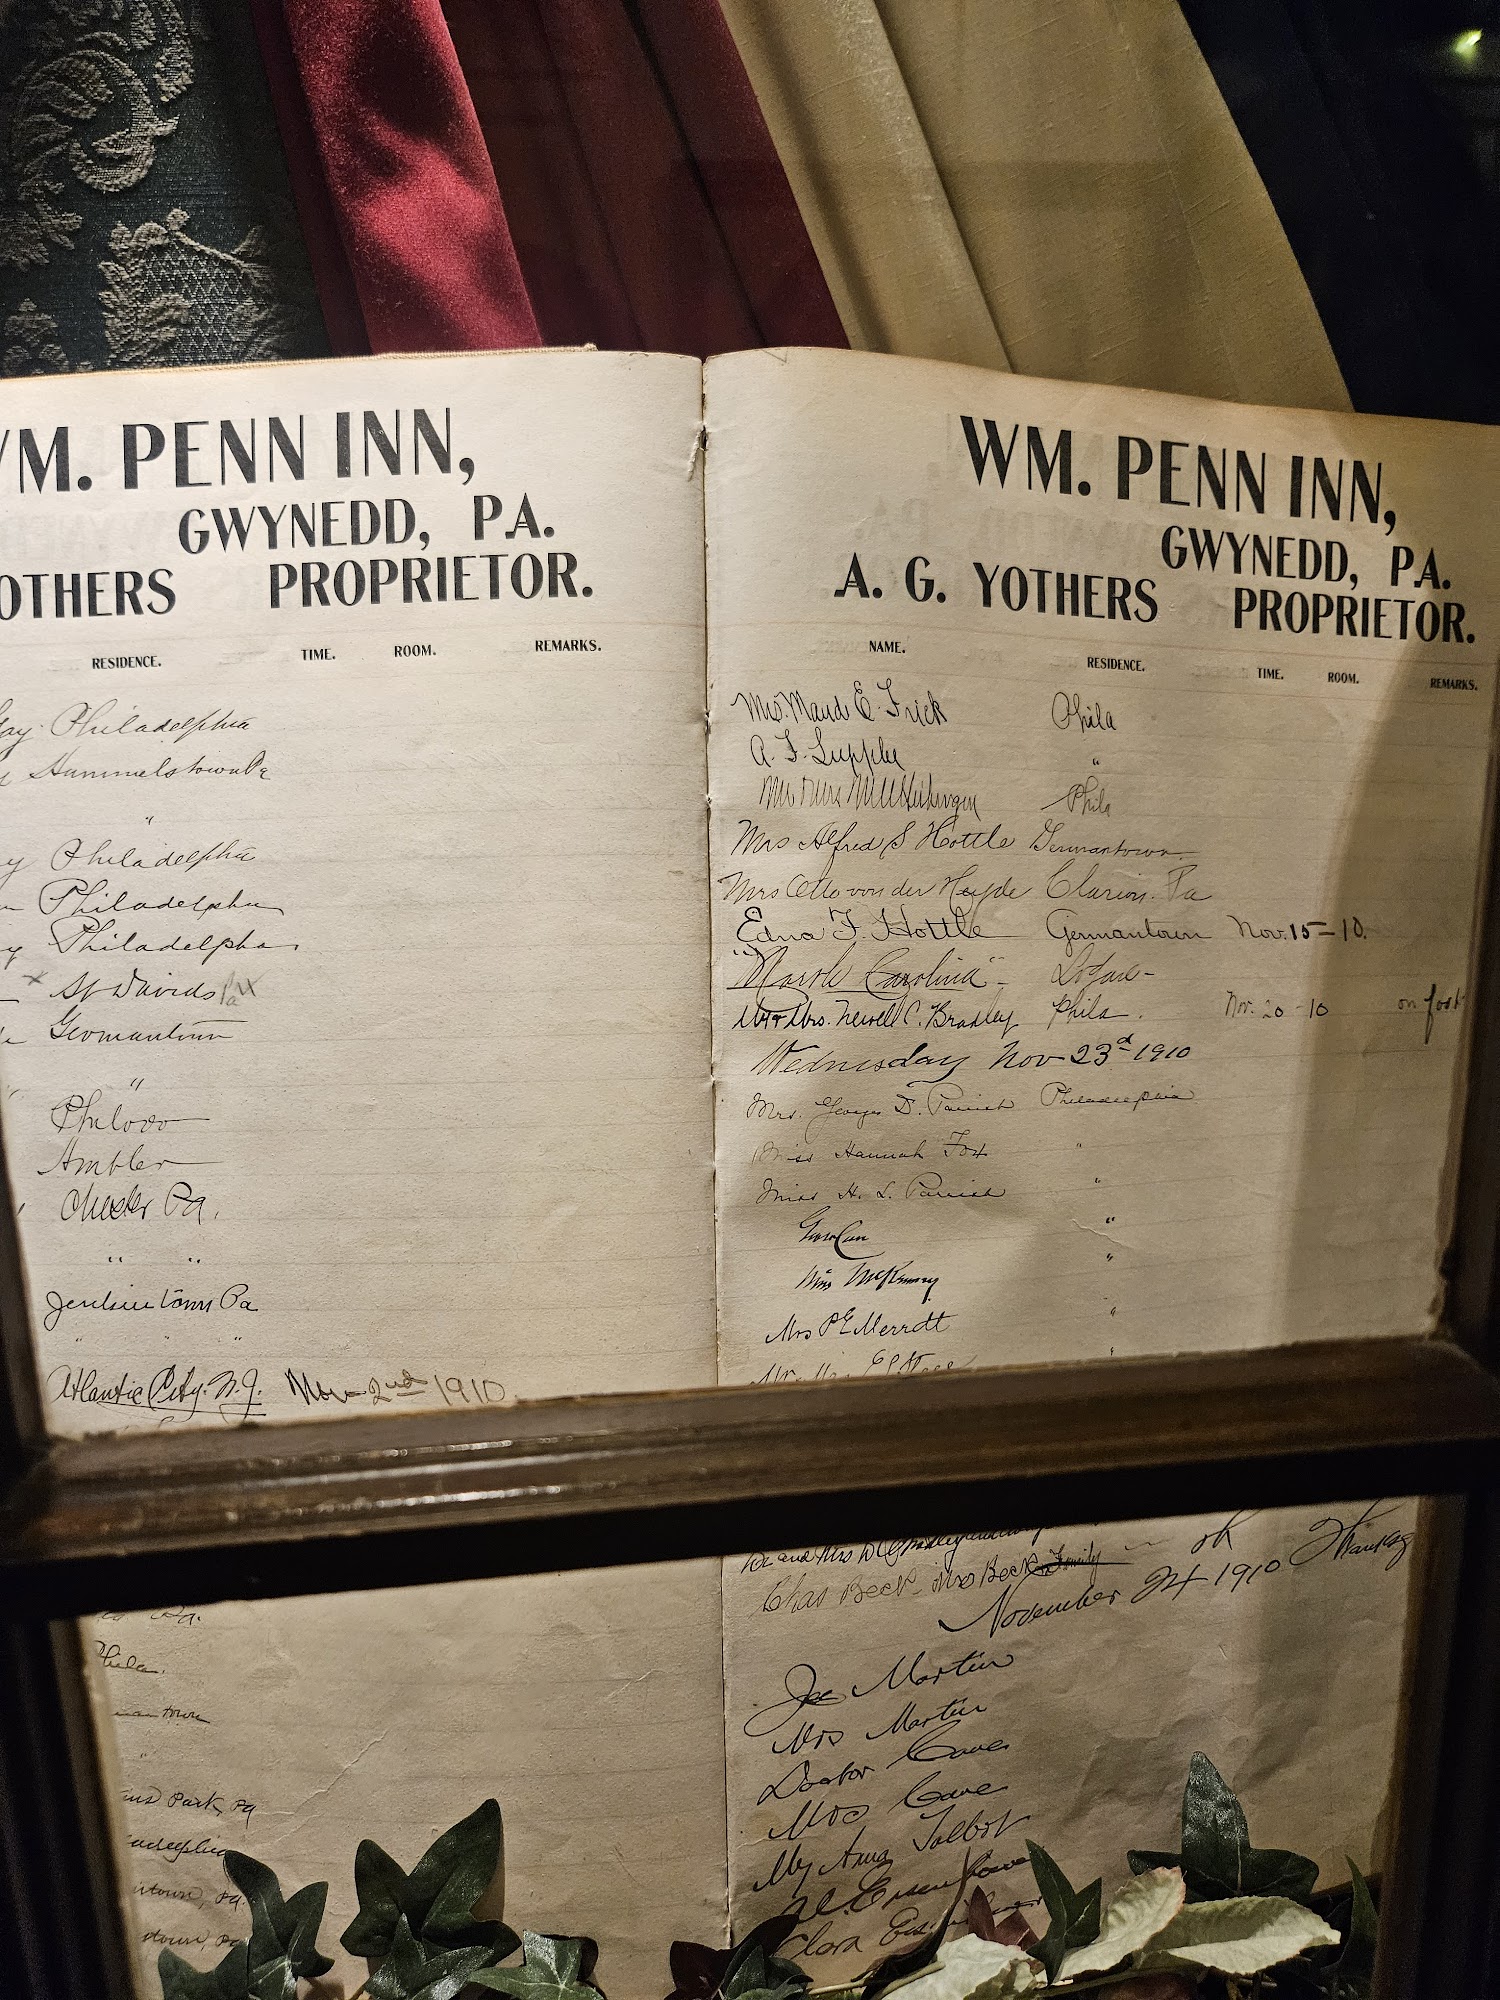 WM. PENN INN,
GWYNEDD, PA.
OTHERS PROPRIETOR.
RESIDENCE. TIME. ROOM. REMARKS.
Philadelphia
Hummelstown Pa
"
Philadelphia
Philadelphia
Philadelphia
St Davids Pa
Germantown
"
Ambler
Chester Pa.
" "
Jenkintown Pa
" "
Atlantic City. N.J. Nov 2nd 1910
Pa.
Phila.
town
"
Park, Pa
Pa.
WM. PENN INN,
GWYNEDD, PA.
A. G. YOTHERS PROPRIETOR.
NAME. RESIDENCE. TIME. ROOM. REMARKS.
Mrs. Maud E. Frick Phila
A. F. "
Phila
Mrs Alfred S Hottle Germantown
Mrs Otto von der Heyde Clarion. Pa
Edna F. Hottle Germantown Nov. 15-10.
Carolina"
Mr & Mrs. Newell C. Bradley Phila. Nov. 20-10 on foot
Wednesday Nov 23d 1910
Mrs. George D. Parrish Philadelphia
Miss Hannah Fox "
Miss H. L. Parrish "
"
Miss McKenney "
Mrs P E Merratt "
"
and Mrs
Chas Beck Mrs Beck Family
November 24 1910
Joe Martin
Mrs Martin
Doctor Cave
Mrs Cave
Anna Talbot
Clara